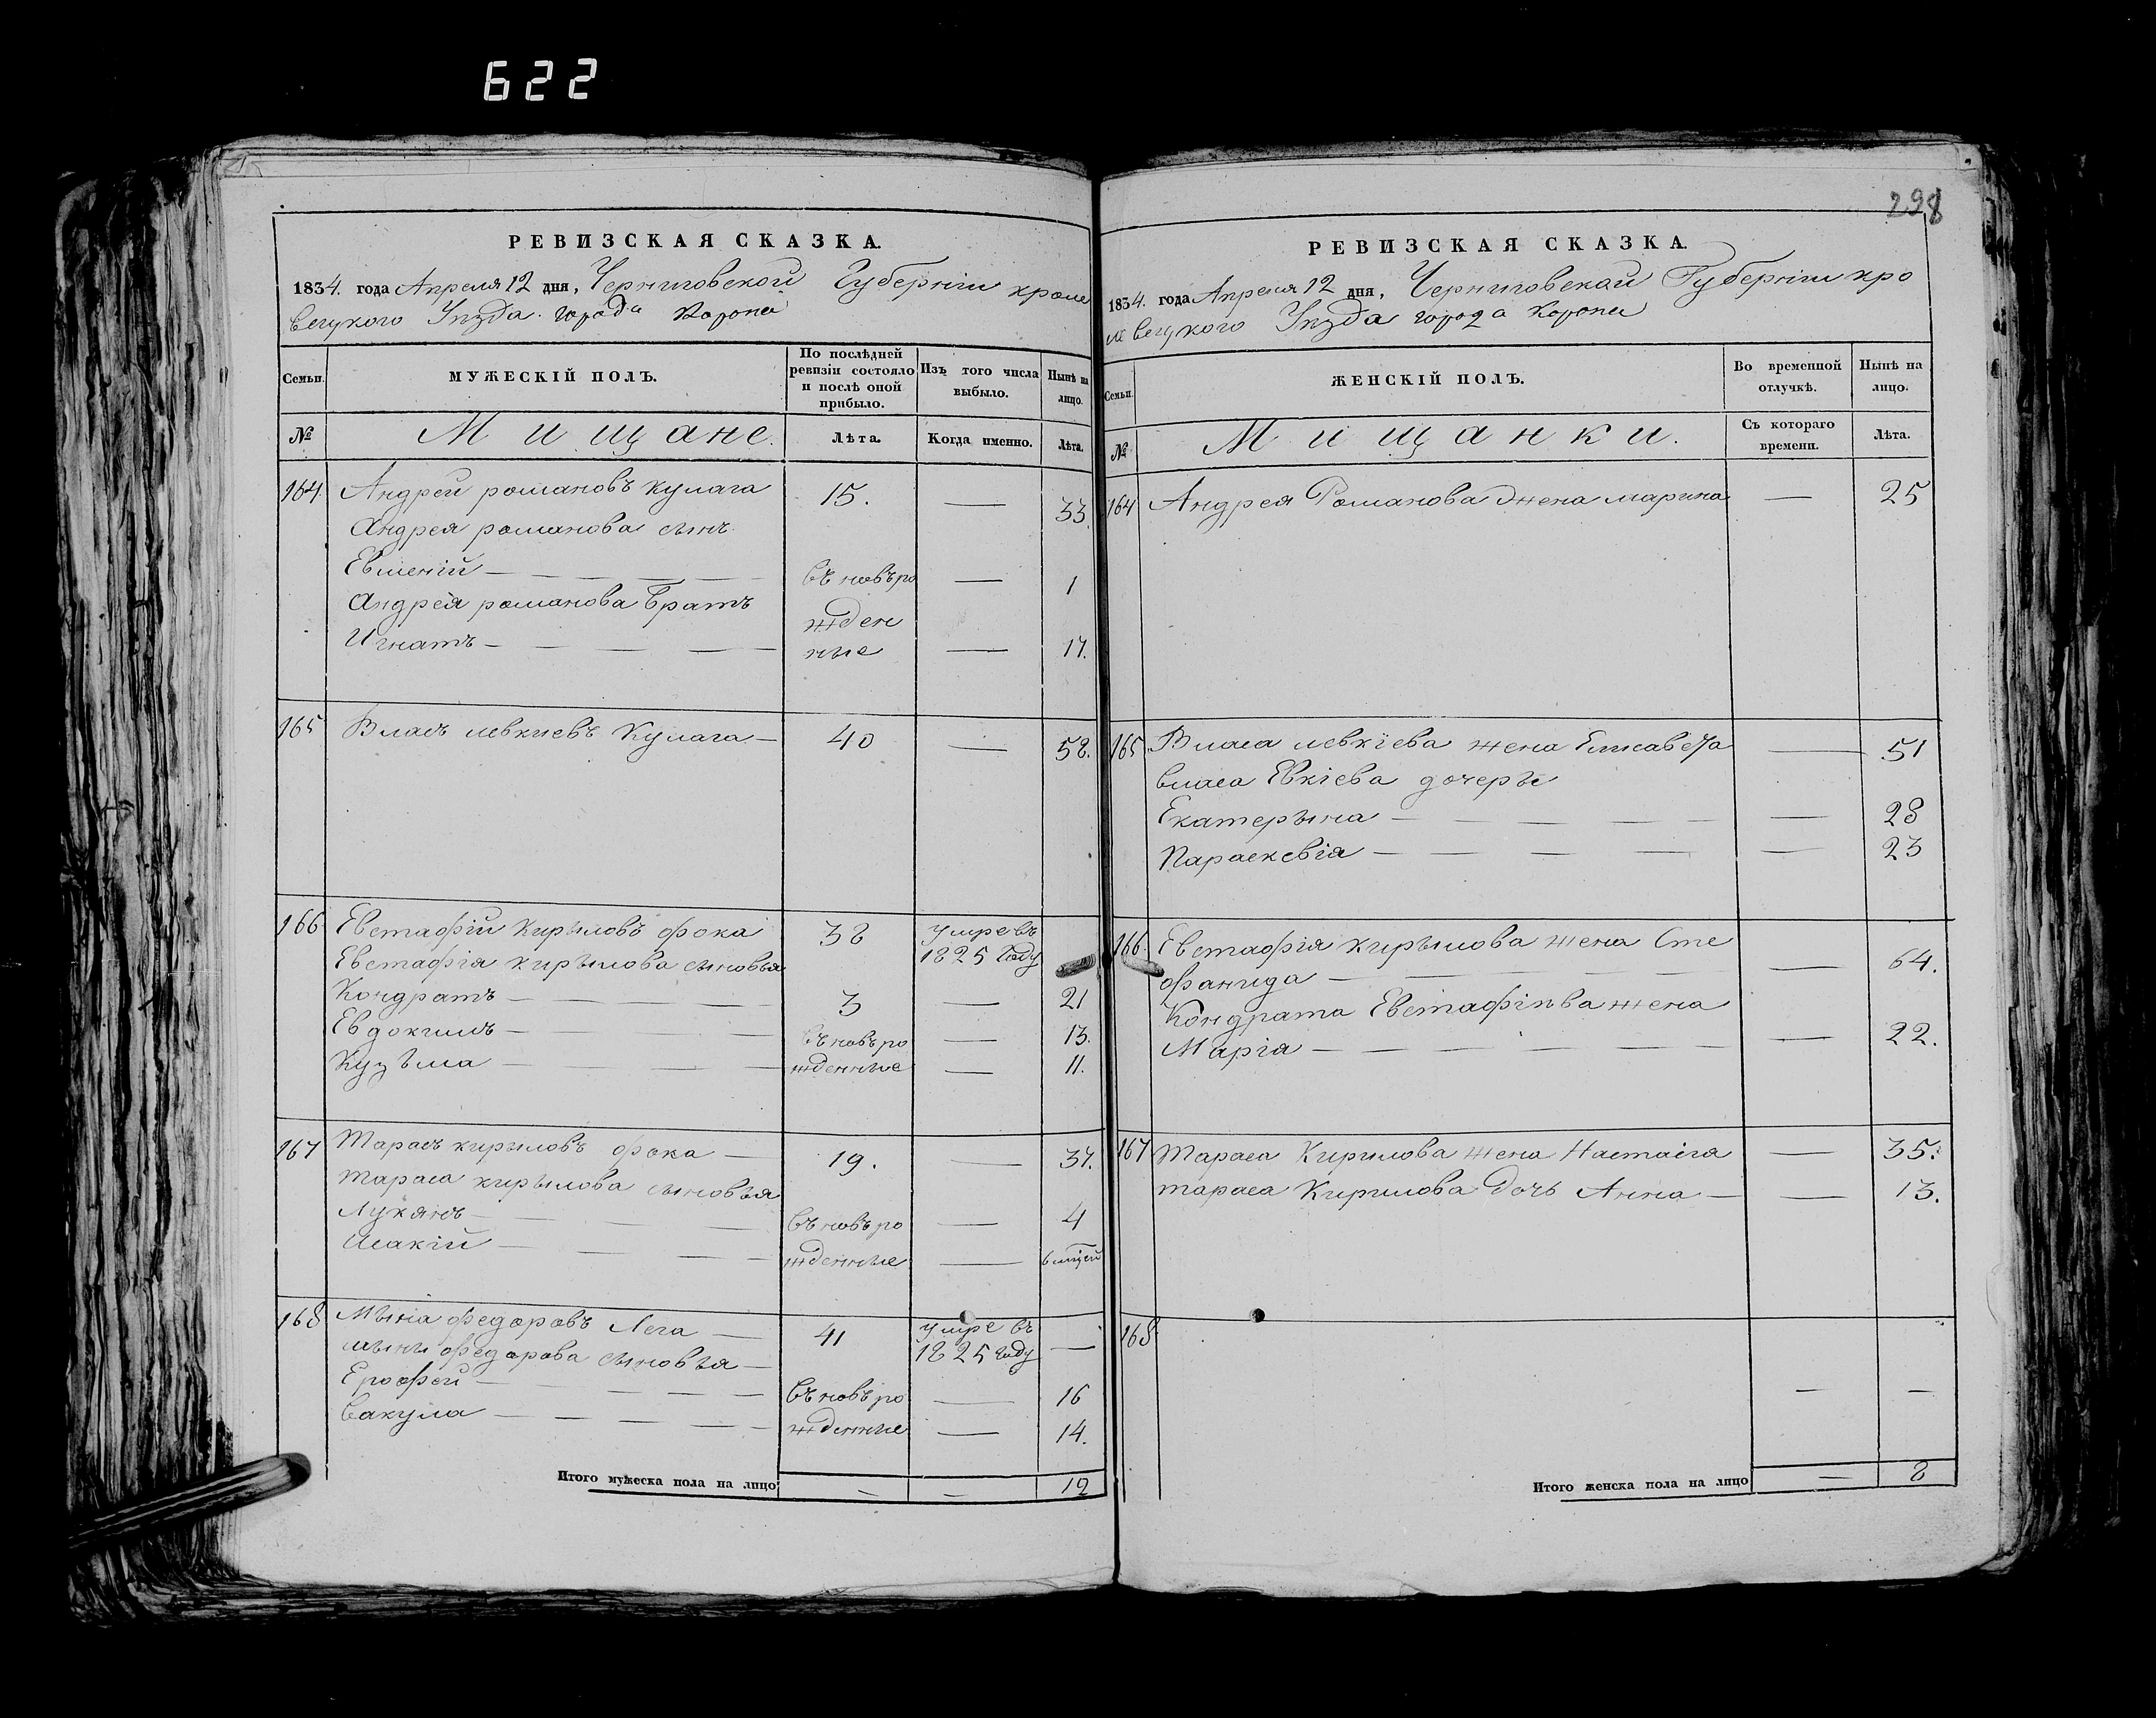 622
298
РЕВИЗСКАЯ СКАЗКА.
1834. года Апреля 12 дня, Черниговской Губернiи кроле
вецкого Уѣзда. города Коропа
Семьи.
МУЖЕСКIЙ ПОЛЪ.
По послѣдней
ревизiи состояло
и послѣ оной
прибыло.
Изъ того числа
выбыло.
Нынѣ на
лицо.
№
Мищане.
Лѣта.
Когда именно.
Лѣта.
164. Андрей романовъ Кулага 15. — 33.
Андрея романова сынъ
Евменiй — въ новъ ро — 1
Андрея романова братъ
жден
Игнатъ — ные — 17.
165 Власъ левкиевъ Кулага — 40 — 58.
166 Евстафiй Кирыловъ фока 38 умре въ
1825 году
Евстафiя кирылова сыновья
Кондратъ — 3 — 21
Евдокимъ — въ новъ ро — 13.
Кузьма — жденные — 11.
167 Тарасъ кирыловъ фока — 19. — 37.
Тараса кирылова сыновья
Лукянъ — въ новъ ро — 4
Исакiй — жденные — 6 мцей
168 Мына федоровъ Лега — 41 умре въ —
1825 году
мыны федорова сыновья —
Ерофей — въ новъ ро — 16
Вакула — жденные — 14.
Итого мужеска пола на лицо — — 12
РЕВИЗСКАЯ СКАЗКА.
1834. года Апреля 12 дня, Черниговской Губернiи кро
ле вецкого Уѣзда города Коропа
Семьи.
ЖЕНСКIЙ ПОЛЪ.
Во временной
отлучкѣ.
Нынѣ на
лицо.
№
Мищанки.
Съ котораго
времени.
Лѣта.
164 Андрея Романова жена марина — 25
165 Власа левкiева жена Елисавета — 51
власа Евкiева дочеры
Екатерына — — 28
Параскевiя — — 23
166. Евстафiя кирылова жена Сте
фанида — — 64.
Кондрата Евстафiѣва жена
Марiя — — 22.
167 Тараса Кирилова жена Настасiя — 35.
тараса Кирилова дочь Анна — — 13.
168 — —
Итого женска пола на лицо — 8